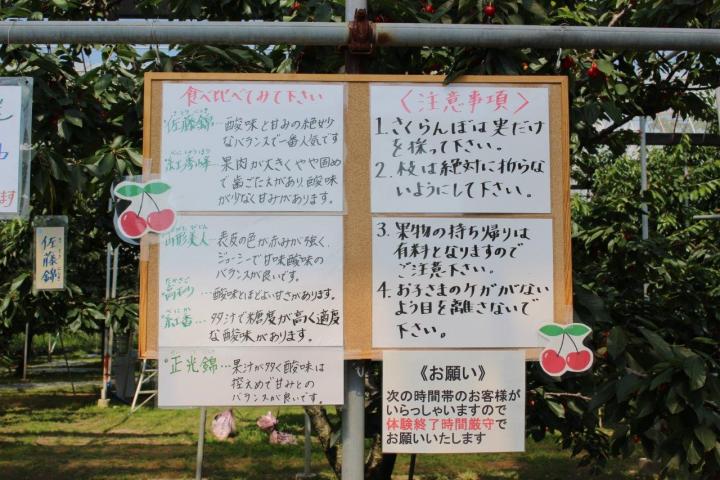 食べ比べてみて下さい
佐藤錦… 酸味と甘みの絶妙
なバランスで一番人気です
紅秀峰… 果肉が大きくやや固め
で歯ごたえがあり、酸味
が少なく甘みがあります。
山形美人… 表皮の色が赤みが強く、
ジューシーで甘味酸味の
バランスが良いです。
高砂…酸味とほどよい甘さがあります。
紅香…多汁で糖度が高く適度
な酸味があります。
正光錦…果汁が多く酸味は
控えめで甘みとの
バランスが良いです。
〈注意事項〉
1. さくらんぼは実だけ
を採って下さい。
2. 枝は絶対に拗らな
いようにして下さい。
3. 果物の持ち帰りは
有料となりますので
ご注意下さい。
4. お子さまのケガがない
よう目を離さないで
下さい。
《お願い》
次の時間帯のお客様が
いらっしゃいますので
体験終了時間厳守で
お願いいたします
佐藤錦